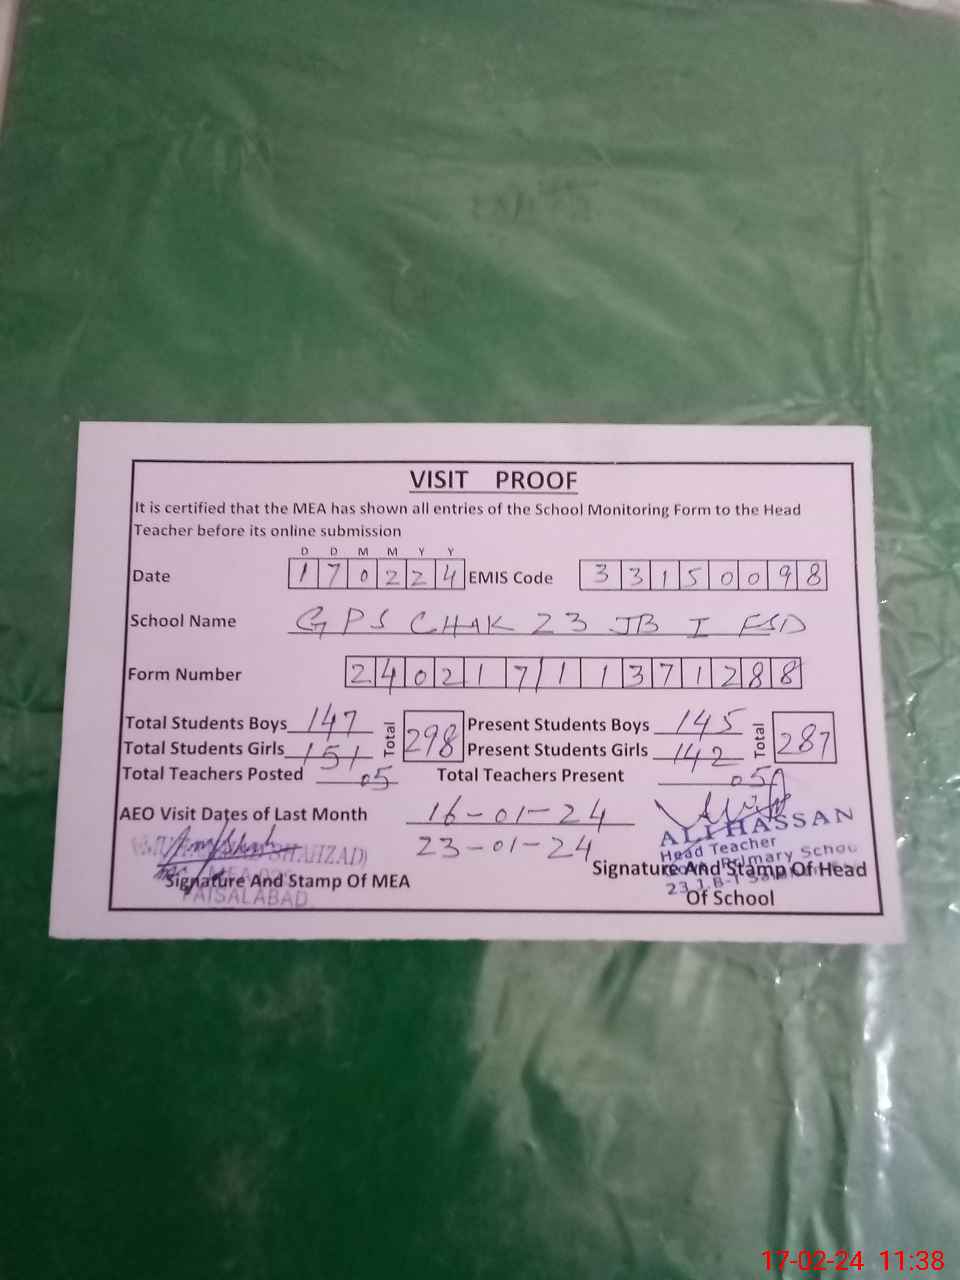 VISIT PROOF
It is certified that the MEA has shown all entries of the School Monitoring Form to the Head
Teacher before its online submission
D D M M Y Y
Date 170224 EMIS Code 33150098
School Name GPS CHAK 23 JB I FSD
Form Number 24021711371288
Total Students Boys 147 Total 298 Present Students Boys 145 Total 287
Total Students Girls 151 Present Students Girls 142
Total Teachers Posted 05 Total Teachers Present 05
AEO Visit Dates of Last Month 16-01-24
23-01-24
ALI HASSAN
Head Teacher
Primary School
23 J.B-I
SHAHZAD)
FAISALABAD
Signature And Stamp Of MEA
Signature And Stamp Of Head
Of School
17-02-24 11:38